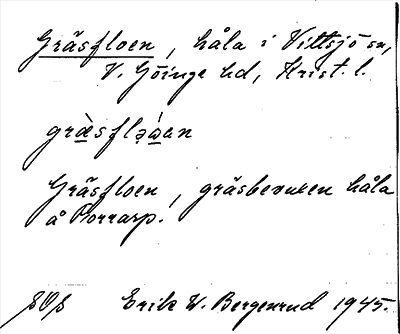 Gräsfloen, håla i Vittsjö sn,
V. Göinge hd, Krist. l.
græ̀sfləẃən
Gräsfloen, gräsbevuxen håla
å Porrarp.
SOS Erik W. Bergenrud 1945.